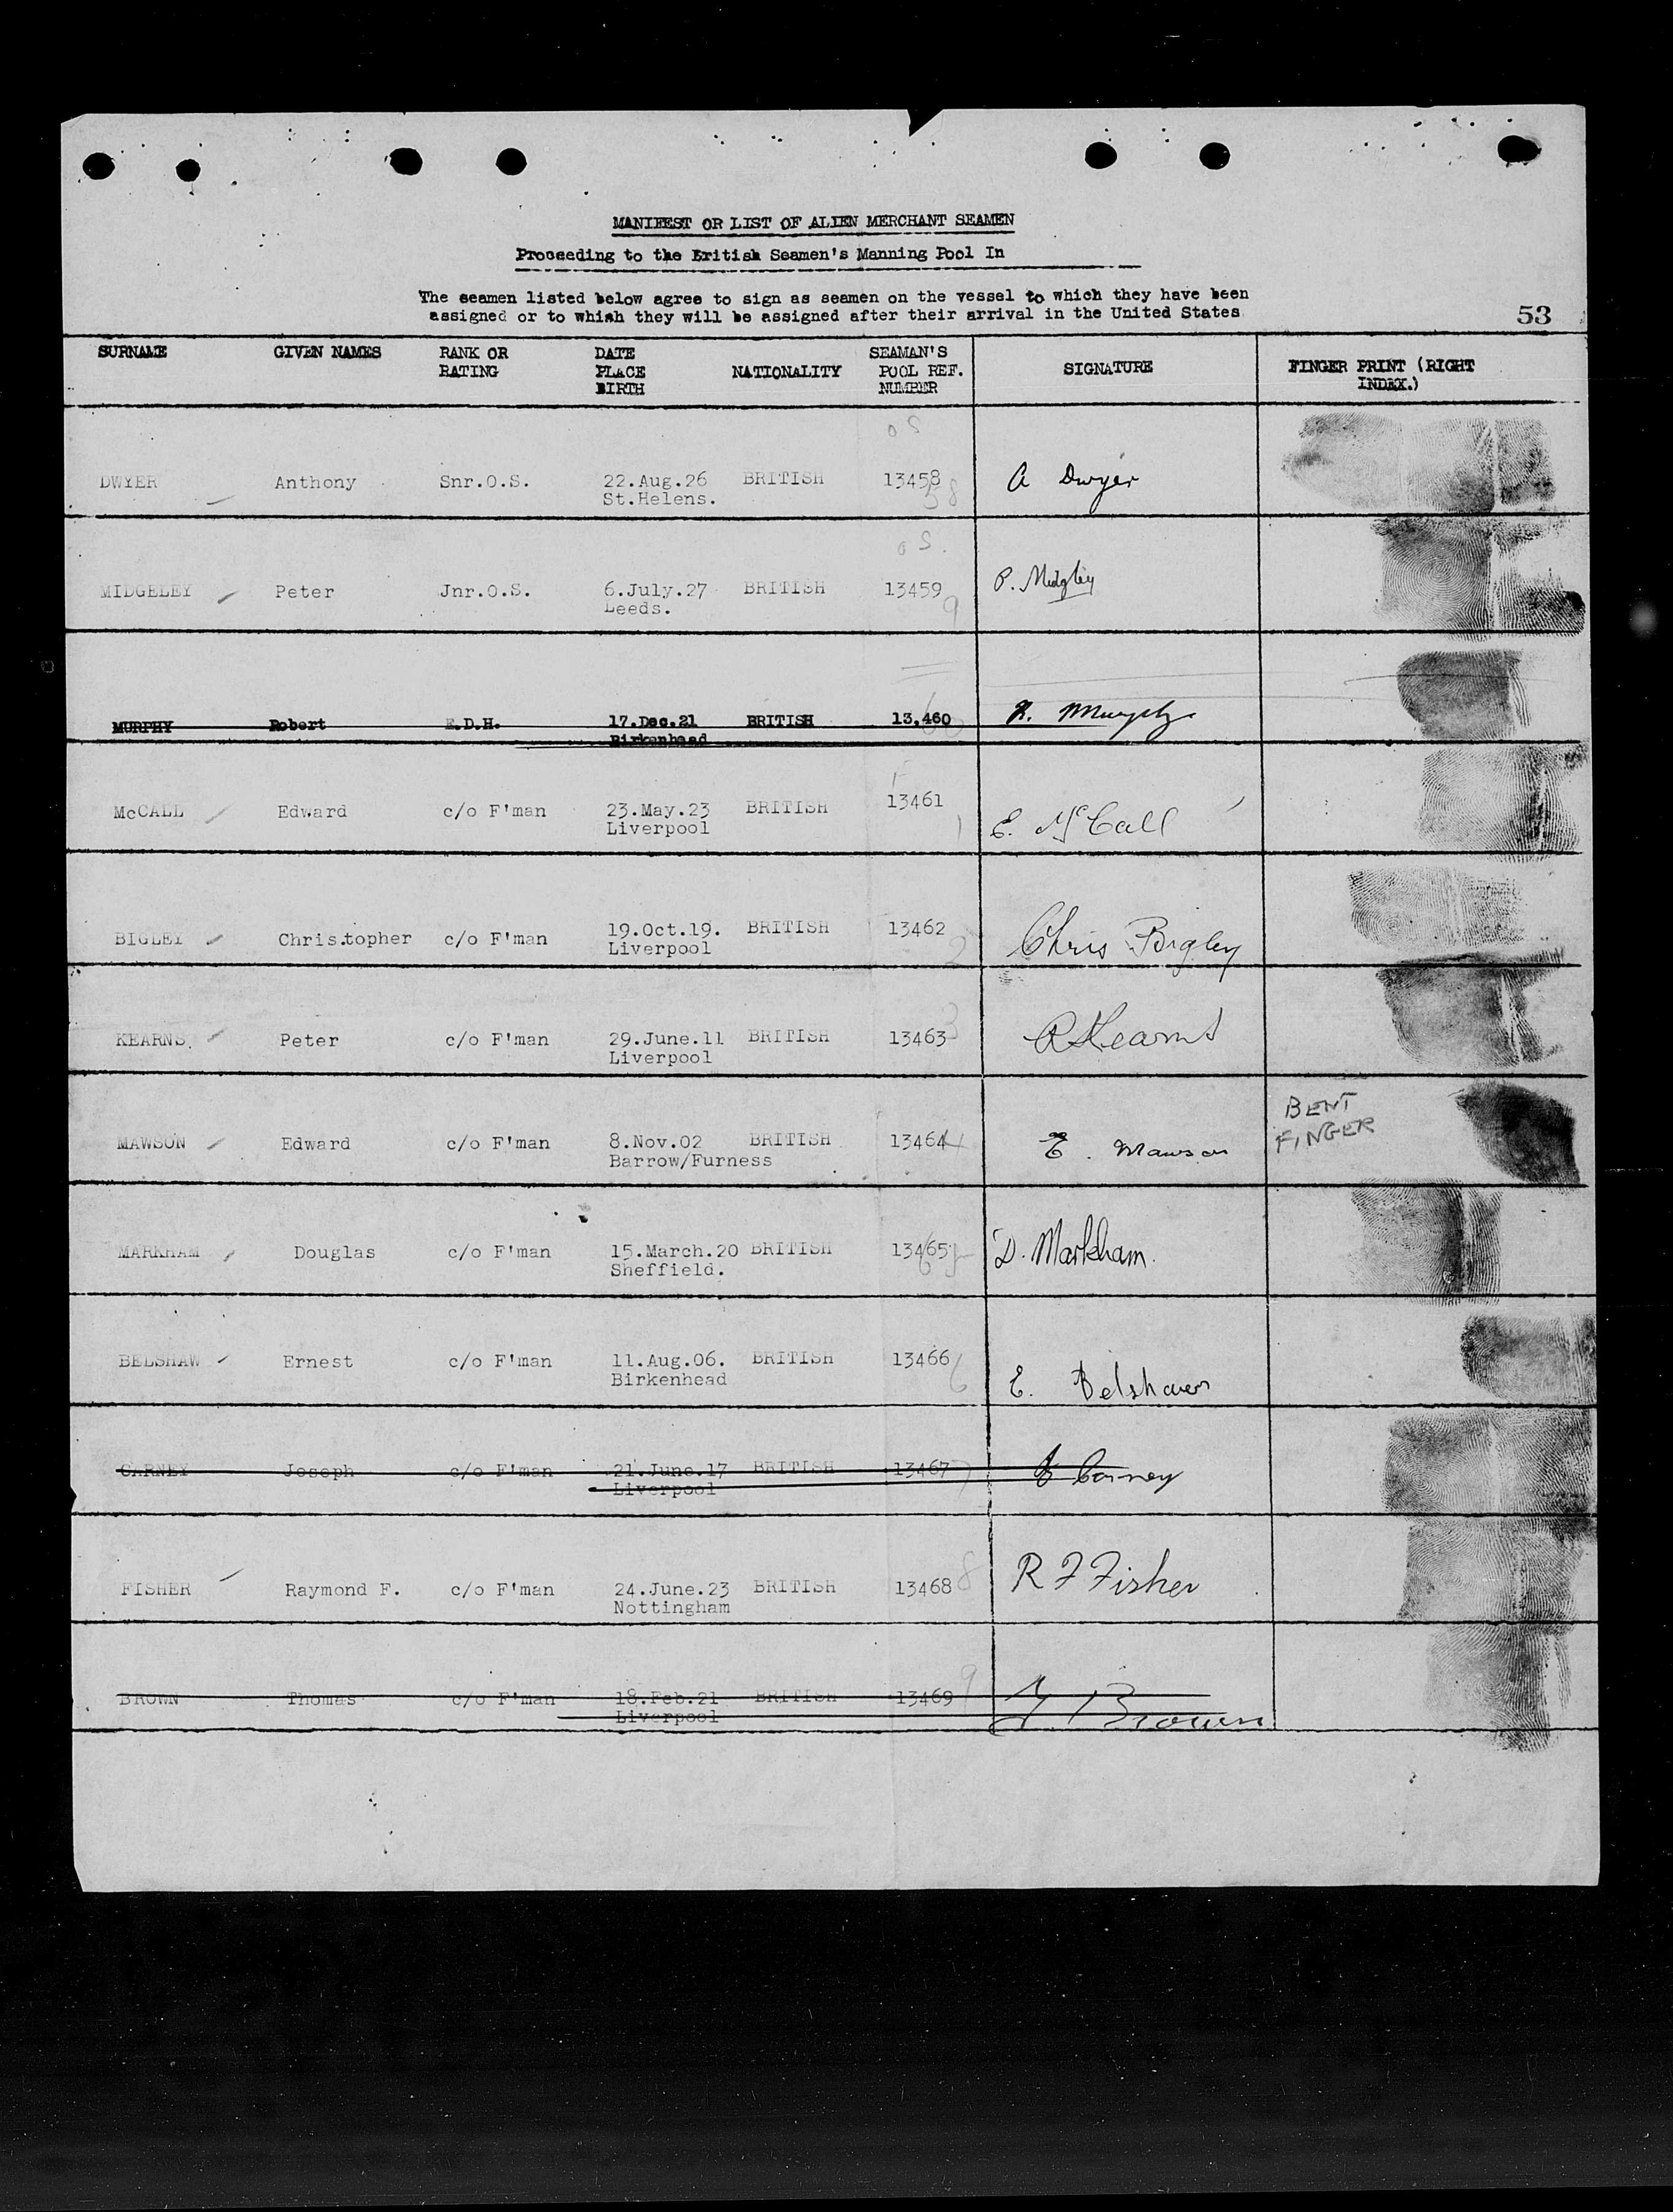 MANIFEST OR LIST OF ALIEN MERCHANT SEAMEN
Proceeding to the British Seamen's Manning Pool In
The seamen listed below agree to sign as seamen on the vessel to which they have been
assigned or to whish they will be assigned after their arrival in the United States.
53
SURNAME GIVEN NAMES RANK OR RATING DATE PLACE BIRTH NATIONALITY SEAMAN'S POOL REF. NUMBER SIGNATURE FINGER PRINT (RIGHT INDEX.)
OS
DWYER Anthony Snr.O.S. 22.Aug.26 BRITISH 13458 A Dwyer
St.Helens. 58
OS.
MIDGELEY Peter Jnr.O.S. 6.July.27 BRITISH 13459 P. Midgley
Leeds. 9
MURPHY Robert E.D.H. 17.Dec.21 BRITISH 13,460 R. Murphy
Birkenhead
McCALL Edward c/o F'man 23.May.23 BRITISH 13461 E. McCall
Liverpool 1
BIGLEY Christopher c/o F'man 19.Oct.19. BRITISH 13462 Chris Bigley
Liverpool 2
KEARNS. Peter c/o F'man 29.June.11 BRITISH 13463 3 P Kearns
Liverpool
BENT
FINGER
MAWSON Edward c/o F'man 8.Nov.02 BRITISH 13464 4 E. Mawson
Barrow/Furness
MARKHAM Douglas c/o F'man 15.March.20 BRITISH 13465 D. Markham.
Sheffield. 65
BELSHAW Ernest c/o F'man 11.Aug.06. BRITISH 13466 E. Belshaw
Birkenhead 6
CARNEY Joseph c/o F'man 21.June.17 BRITISH 13467 7 J Carney
Liverpool
FISHER Raymond F. c/o F'man 24.June.23 BRITISH 13468 8 R F Fisher
Nottingham
BROWN Thomas c/o F'man 18.Feb.21 BRITISH 13469 9 T. Brown
Liverpool